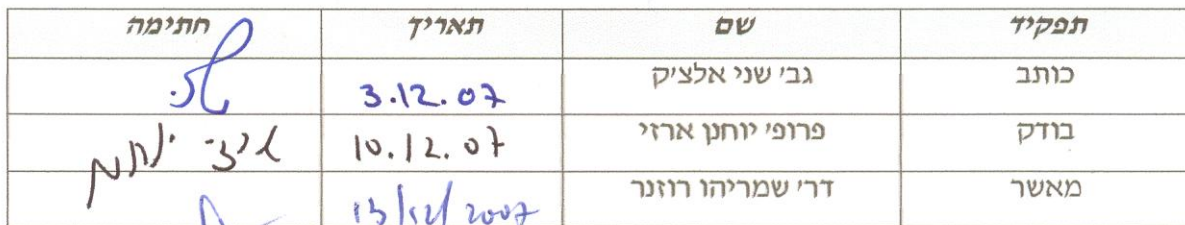 תפקיד שם תאריך חתימה
כותב גב׳ שני אלצ׳יק 3.12.07
בודק פרופ׳ יוחנן ארזי 10.12.07
מאשר דר׳ שמריהו רוזנר 13/12/2007